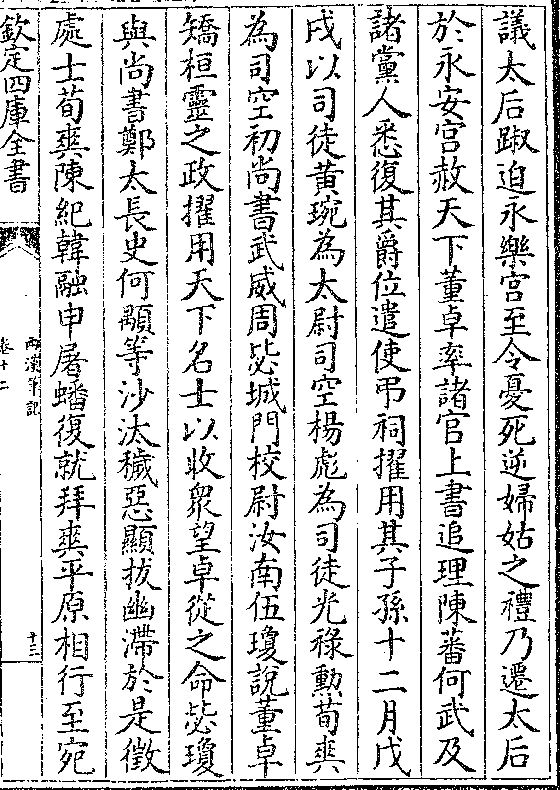 議太后踧迫永樂宫至令憂死逆婦姑之禮乃遷太后
於永安宫赦天下董卓率諸官上書追理陳蕃何武及
諸黨人悉復其爵位遣使弔祠擢用其子孫十二月戊
戌以司徒黄琬為太尉司空楊彪為司徒光祿勲荀爽
為司空初尚書武威周毖城門校尉汝南伍瓊說董卓
矯桓靈之政擢用天下名士以收衆望卓從之命毖瓊
與尚書鄭太長史何顒等沙汰穢惡顯拔幽滯於是徵
處士荀爽陳紀韓融申屠蟠復就拜爽平原相行至宛
欽定四庫全書
兩漢筆記
卷十二
十三